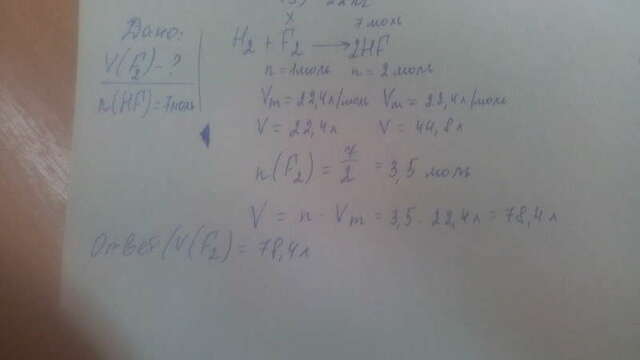 22
Дано:
V(F₂) - ?
n(HF) = 7 моль
x 7 моль
H₂ + F₂ → 2HF
n = 1 моль n = 2 моль
Vm = 22,4 л/моль Vm = 22,4 л/моль
V = 22,4 л V = 44,8 л
n(F₂) = 7/2 = 3,5 моль
V = n · Vm = 3,5 · 22,4 л = 78,4 л
Ответ: V(F₂) = 78,4 л